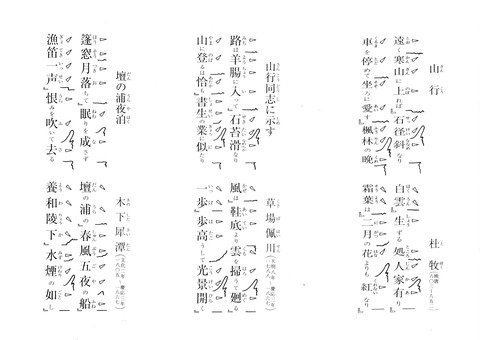 山行
杜牧
遠く寒山に上れば』石径斜なり
白雲』生ずる処人家有り
車を停めて坐ろに愛す』楓林の晩
霜葉は』二月の花よりも』紅なり
山行同志に示す
草場佩川
路は羊腸に入って』石苔滑なり
風』鞋底より雲を掃うて廻る
山に登るは恰も』書生の業に似たり
一歩』歩高うして光景開く
壇の浦夜泊
木下犀潭
篷窓月落ちて』眠を成さず
壇の浦の』春風五夜の船
漁笛一声』恨みを吹いて去る
養和陵下』水煙の如し